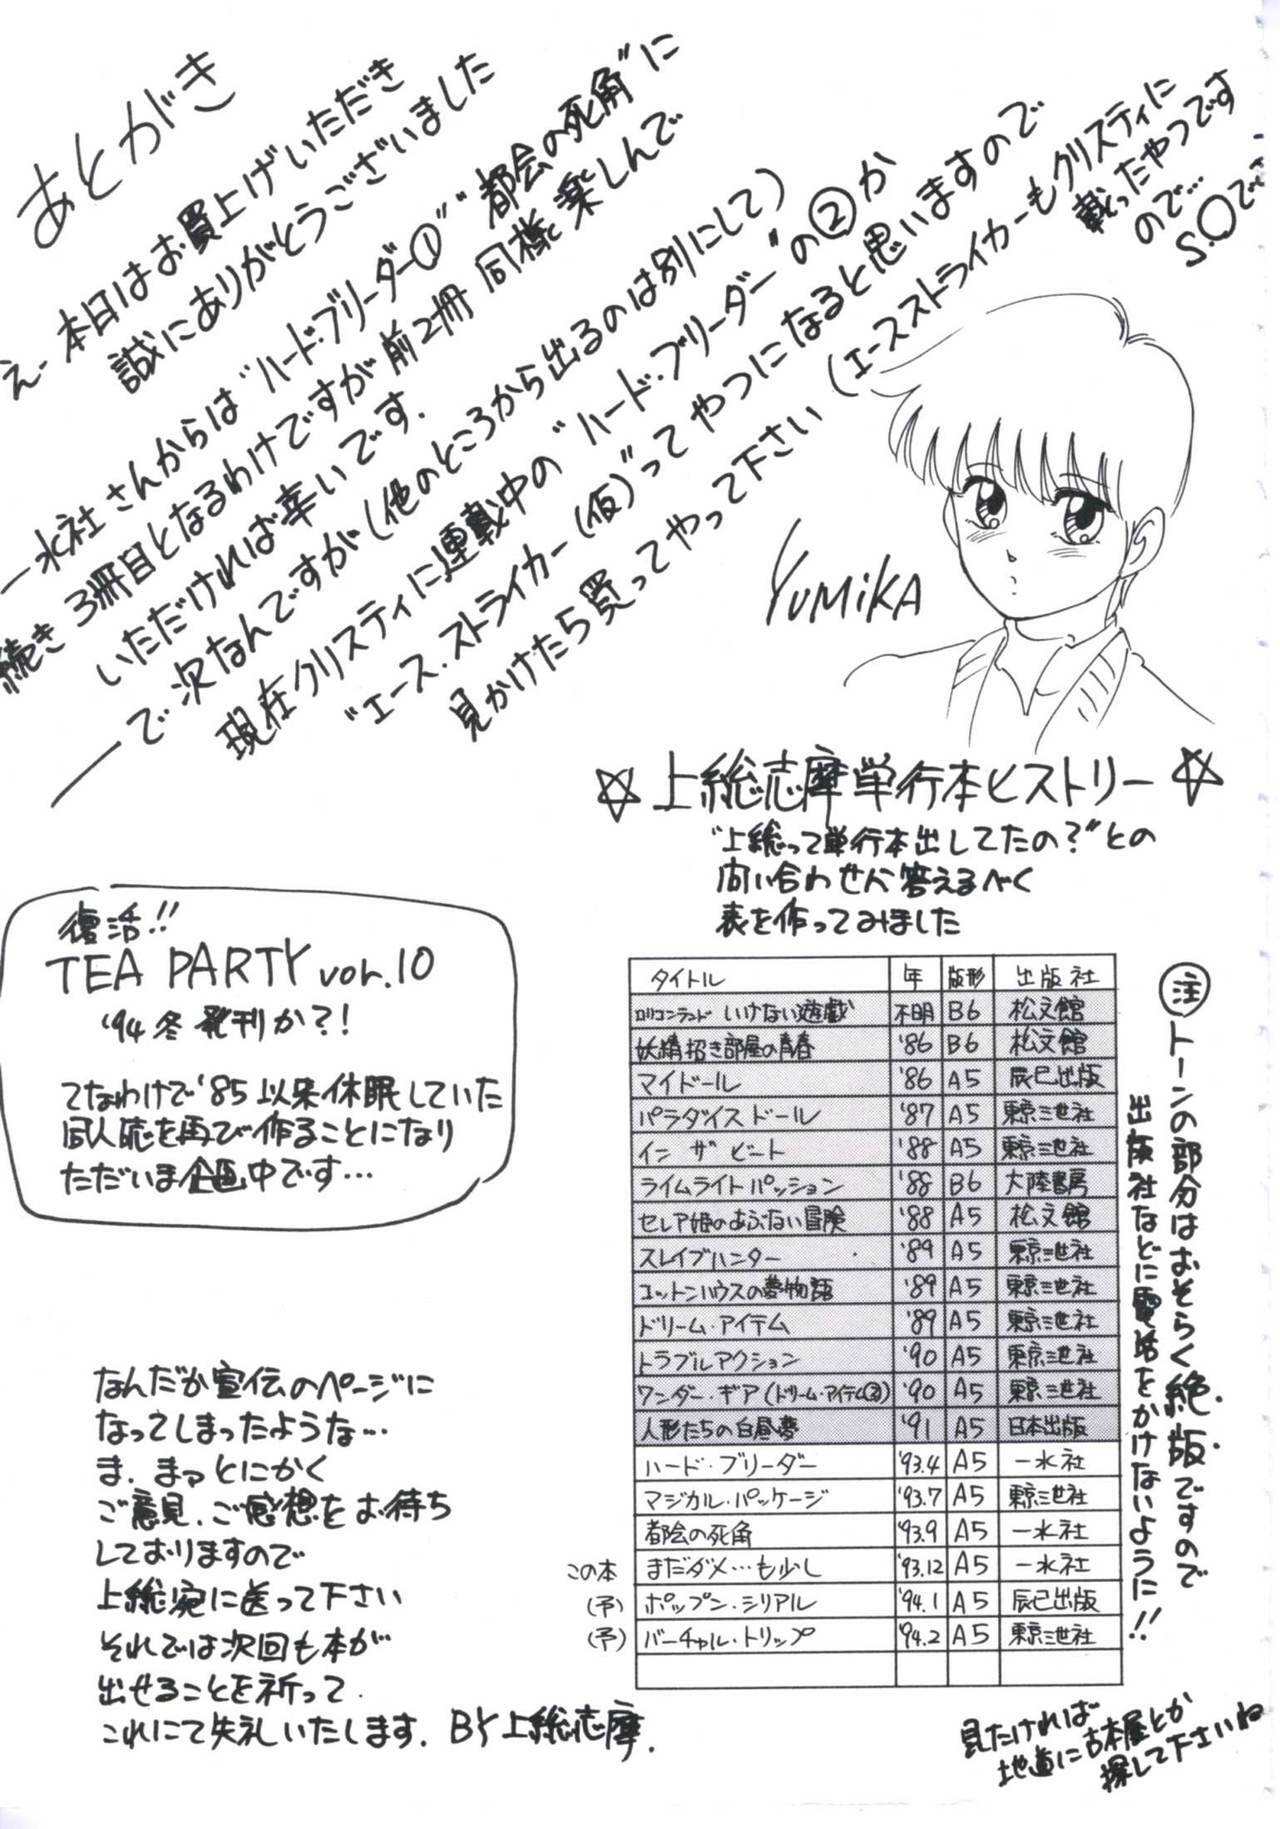 あとがき
え- 本日はお買上げいただき
誠にありがとうございました
一水社さんからは"ハード・ブリーダー①""都会の死角"に
続き3冊目となるわけですが前2冊同様楽しんで
いただければ幸いです.
で次なんですが(他のところから出るのは別にして)
現在クリスティに連載中の"ハード・ブリーダー"の②か
"エース.ストライカー(仮)"ってやつになると思いますので
見かけたら買ってやって下さい(エースストライカーもクリスティに
載ったやつです
ので…
S.Oです
YUMiKA
☆上総志摩単行本ヒストリー☆
"上総って単行本出してたの?"との
問い合わせに答えるべく
表を作ってみました
復活!!
TEA PARTY vor.10
'94冬発刊か?!
てなわけで'85以来休眠していた
同人誌を再び作ることになり
ただいま企画中です…
タイトル 年 版形 出版社
ロリコンランド いけない遊戯 不明 B6 松文館
妖精招き部屋の青春 '86 B6 松文館
マイドール '86 A5 辰巳出版
パラダイスドール '87 A5 東京三世社
イン ザ ビート '88 A5 東京三世社
ライムライトパッション '88 B6 大陸書房
セレア姫のあぶない冒険 '88 A5 松文館
スレイブハンター '89 A5 東京三世社
コットンハウスの夢物語 '89 A5 東京三世社
ドリーム・アイテム '89 A5 東京三世社
トラブルアクション '90 A5 東京三世社
ワンダー・ギア(ドリーム・アイテム②) '90 A5 東京三世社
人形たちの白昼夢 '91 A5 日本出版
ハード・ブリーダー '93.4 A5 一水社
マジカル・パッケージ '93.7 A5 東京三世社
都会の死角 '93.9 A5 一水社
この本 まだダメ…も少し '93.12 A5 一水社
(予) ポップン・シリアル '94.1 A5 辰巳出版
(予) バーチャル・トリップ '94.2 A5 東京三世社
注 トーンの部分はおそらく絶版ですので
出版社などに電話をかけないように!!
見たければ
地道に古本屋とか
探して下さいね
なんだか宣伝のページに
なってしまったような…
ま.まァとにかく
ご意見.ご感想をお待ち
しておりますので
上総宛に送って下さい
それでは次回も本が
出せることを祈って.
これにて失礼いたします. BY上総志摩.